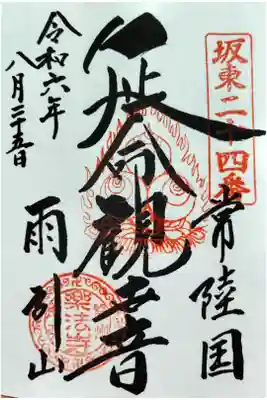 坂東二十四番
常陸国
延命觀音
雨引山
令和六年
八月二十五日